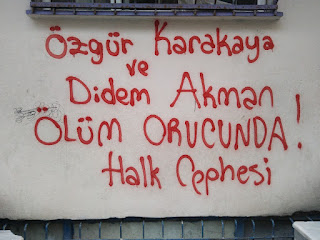 Özgür Karakaya
ve
Didem Akman
ÖLÜM ORUCUNDA!
Halk Cephesi